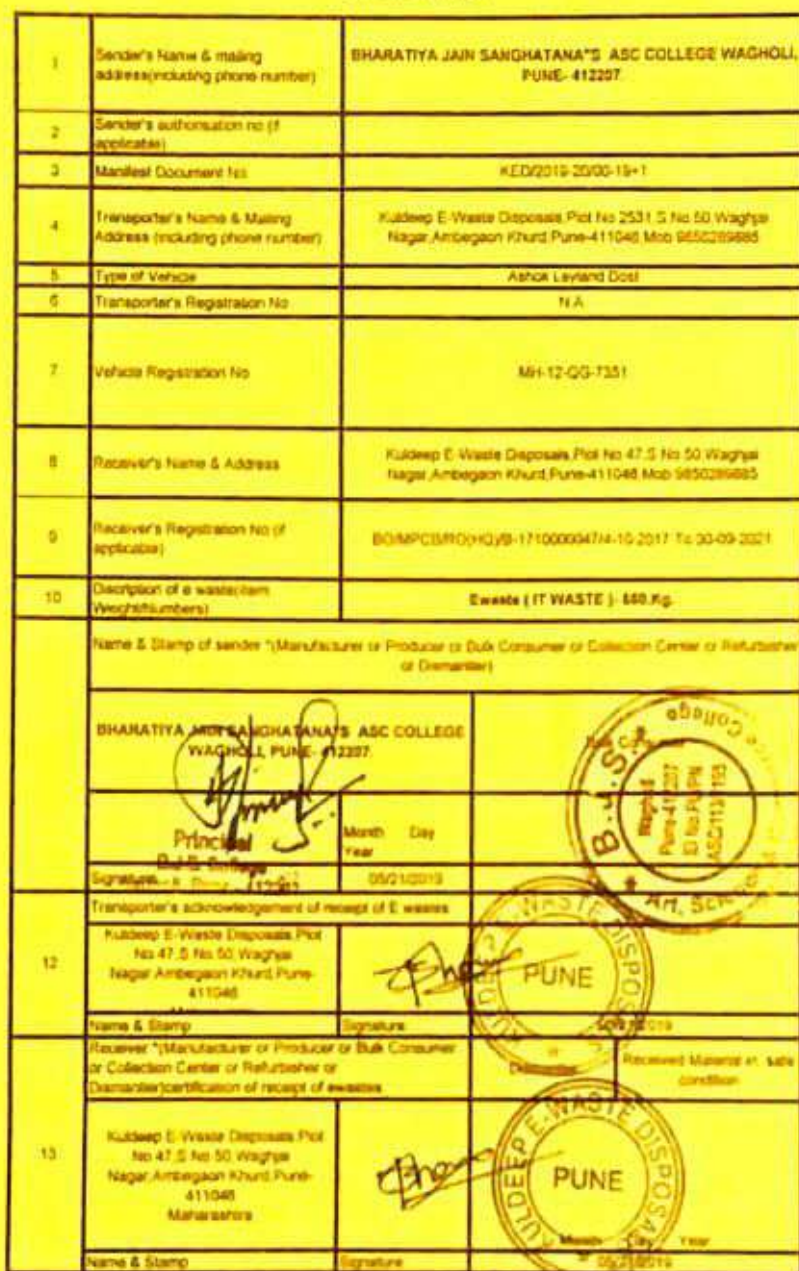 1
Sender's Name & mailing
address(including phone number)
BHARATIYA JAIN SANGHATANA"S ASC COLLEGE WAGHOLI,
PUNE- 412207
2
Sender's authorisation no (if
applicable)
3
Manifest Document No
KED/2019-20/00-19+1
4
Transporter's Name & Mailing
Address (including phone number)
Kuldeep E-Waste Disposals,Plot No 2531,S.No.50 Waghjai
Nagar,Ambegaon Khurd,Pune-411046 Mob 9850289885
5
Type of Vehicle
Ashok Leyland Dost
6
Transporter's Registration No
N.A
7
Vehicle Registration No
MH-12-QG-7351
8
Receiver's Name & Address
Kuldeep E-Waste Disposals,Plot No 47,S No 50 Waghjai
Nagar,Ambegaon Khurd,Pune-411046 Mob 9850289885
9
Receiver's Registration No (if
applicable)
BO/MPCB/RO(HQ)/B-1710000047/4-10-2017 To 30-09-2021
10
Discription of e waste(item
Weight/Numbers)
Ewaste ( IT WASTE )- Kg.
Name & Stamp of sender *(Manufacturer or Producer or Bulk Consumer or Collection Center or Refurbisher
or Dismantler)
BHARATIYA JAIN SANGHATANA'S ASC COLLEGE
WAGHOLI, PUNE- 412207.
Principal
B.J.S. College
Month Day
Year
Signature
05/21/2019
B.J.S.
Art, Science College
Wagholi
Pune-412207
ID No.PU/PN
ASC/113/1195
12
Transporter's acknowledgement of receipt of E wastes
Kuldeep E-Waste Disposals,Plot
No 47,S No 50 Waghjai
Nagar,Ambegaon Khurd,Pune-
411046
KULDEEP E-WASTE DISPOSALS
PUNE
Name & Stamp
Signature
2019
13
Receiver *(Manufacturer or Producer or Bulk Consumer
or Collection Center or Refurbisher or
Dismantler)certification of receipt of ewastes
Dismantler
Received Material in safe
condition
Kuldeep E-Waste Disposals,Plot
No 47,S No 50 Waghjai
Nagar,Ambegaon Khurd,Pune-
411046
Maharashtra
KULDEEP E-WASTE DISPOSALS
PUNE
Month Day Year
Name & Stamp
Signature
05/21/2019